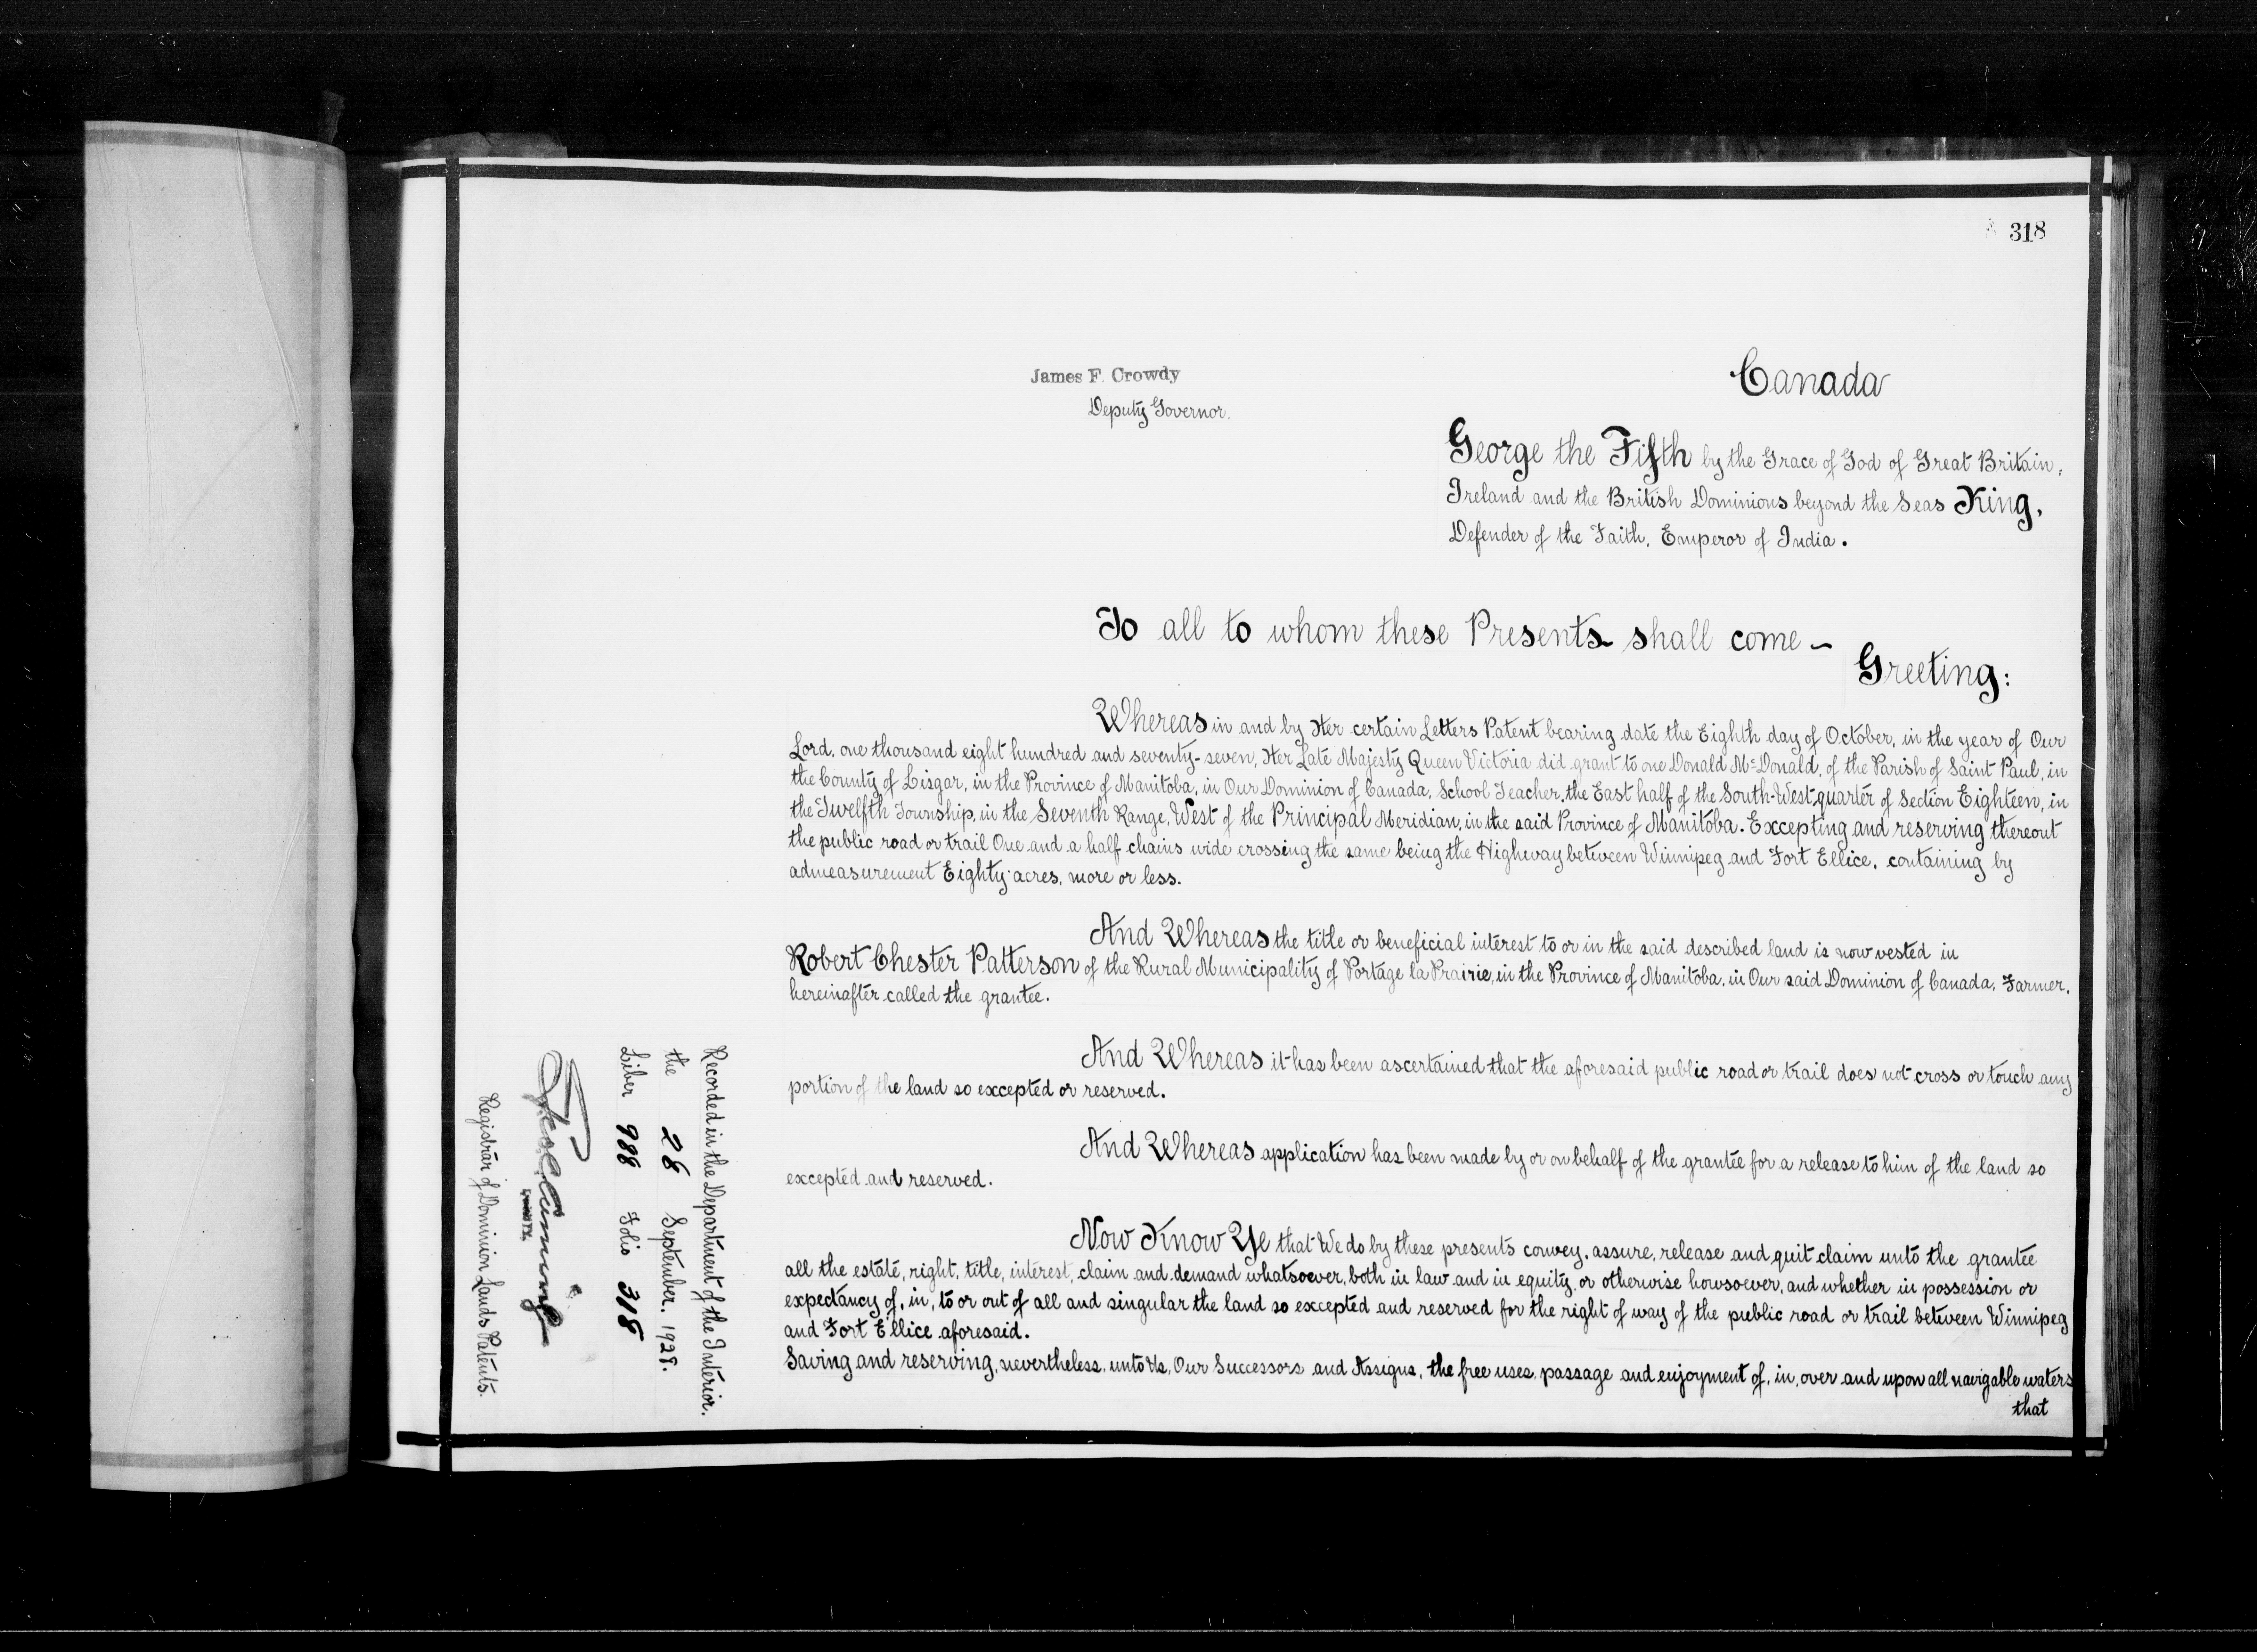 318
James F. Crowdy
Deputy Governor.
Canada
George the Fifth by the Grace of God of Great Britain,
Ireland and the British Dominions beyond the Seas King,
Defender of the Faith, Emperor of India.
To all to whom these Presents shall come ~
Greeting:
Whereas in and by Her certain Letters Patent bearing date the Eighth day of October, in the year of Our
Lord, one thousand eight hundred and seventy-seven, Her Late Majesty Queen Victoria did grant to one Donald McDonald, of the Parish of Saint Paul, in
the County of Lisgar, in the Province of Manitoba, in Our Dominion of Canada, School Teacher, the East half of the South-West quarter of Section Eighteen, in
the Twelfth Township, in the Seventh Range, West of the Principal Meridian, in the said Province of Manitoba. Excepting and reserving thereout
the public road or trail One and a half chains wide crossing the same being the Highway between Winnipeg and Fort Ellice, containing by
admeasurement Eighty acres, more or less.
And Whereas the title or beneficial interest to or in the said described land is now vested in
Robert Chester Patterson of the Rural Municipality of Portage la Prairie, in the Province of Manitoba, in Our said Dominion of Canada, Farmer,
hereinafter called the grantee.
And Whereas it has been ascertained that the aforesaid public road or trail does not cross or touch any
portion of the land so excepted or reserved.
And Whereas application has been made by or on behalf of the grantee for a release to him of the land so
excepted and reserved.
Now Know Ye that We do by these presents convey, assure, release and quit claim unto the grantee
all the estate, right, title, interest, claim and demand whatsoever, both in law and in equity, or otherwise howsoever, and whether in possession or
expectancy of, in, to or out of all and singular the land so excepted and reserved for the right of way of the public road or trail between Winnipeg
and Fort Ellice aforesaid.
Saving and reserving, nevertheless, unto Us, Our Successors and Assigns, the free uses, passage and enjoyment of, in, over and upon all navigable waters
that
Recorded in the Department of the Interior.
the 28 September, 1928.
Liber 988 Folio 318
Registrar of Dominion Lands Patents.